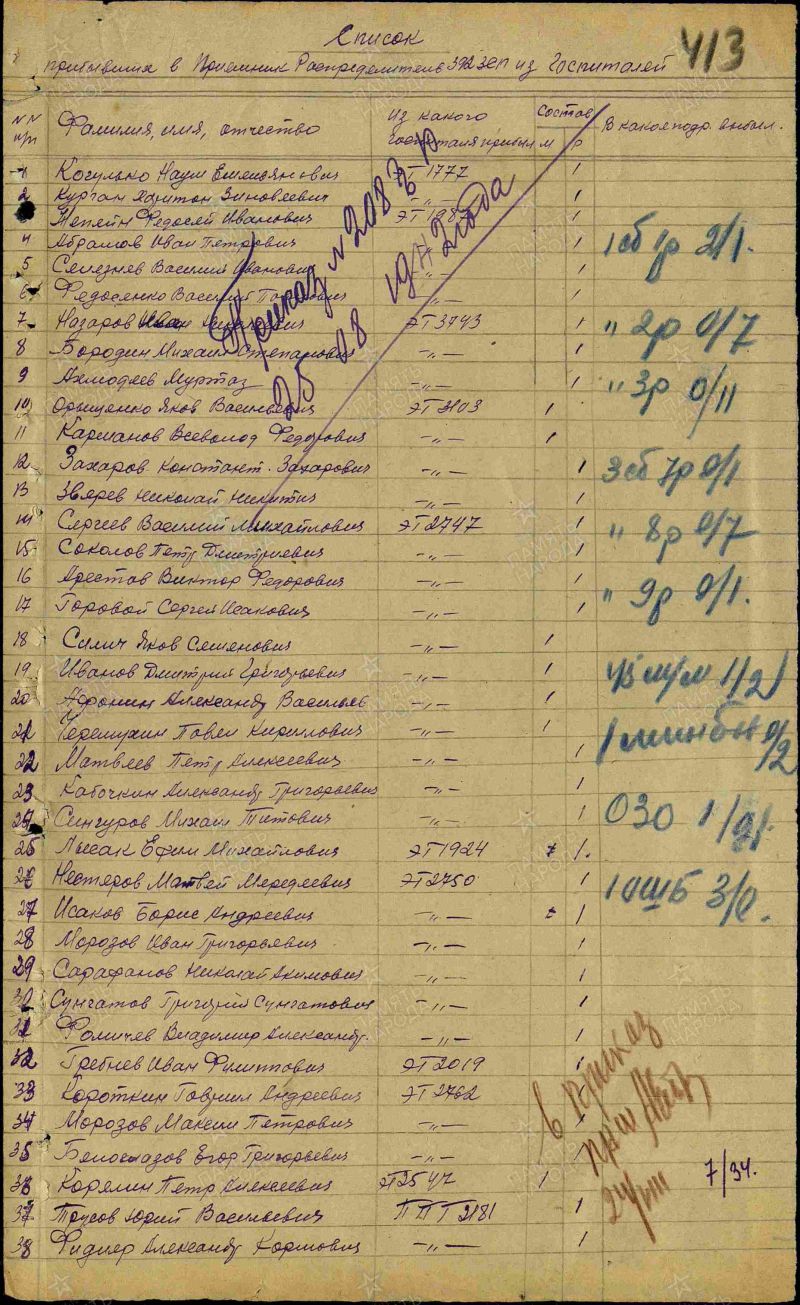 Список 413
прибывших в Приемник Распределитель 392 ЗСП из Госпиталей
NN п/п Фамилия, имя, отчество Из какого госпиталя прибыл Состав м р В какое подр. выбыл.
1 Когулько Наум Емельянович ЭГ 1777 1
2 Курган Харитон Зиновеевич -"- 1
Федосей Иванович ЭГ 1 1
4 Абрамов Иван Петрович -"- 1
5 Селезнев Василий Иванович -"- 1
6 Федосенко Василий -"- 1
7 Назаров Иван ЭГ 3743 1
8 Бородин Михаил Степанович -"- 1
9 Ахмодеев Муртаз -"- 1
10 Орыщенко Яков Васильевич ЭГ 3103 1
11 Карманов Всеволод Федорович -"- 1
12 Захаров Констант. Захарович -"- 1
13 Зверев Николай Никитич -"- 1
14 Сергеев Василий Михайлович ЭГ 2747 1
15 Соколов Петр Дмитриевич -"- 1
16 Арестов Виктор Федорович -"- 1
17 Горовой Сергей Исакович -"- 1
18 Силич Яков Семенович -"- 1
19 Иванов Дмитрий Григорьевич -"- 1
20 Афонин Александр Васильев -"- 1
21 Черемухин Павел Кириллович -"- 1
22 Матвеев Петр Алексеевич -"- 1
23 Кабочкин Александр Григорьевич -"- 1
24 Сингуров Михаил Титович -"- 1
25 Лысак Ефим Михайлович ЭГ 1924 1.
26 Нестеров Матвей ЭГ 2750 1
27 Исаков Борис Андреевич -"- 1
28 Морозов Иван Григорьевич -"- 1
29 Сарафанов Николай Акимович -"- 1
30 Сунгатов Григорий Сунгатович -"- 1
31 Фомичев Владимир Александр. -"- 1
32 Гребнев Иван Филиппович ЭГ 2019 1
33 Короткин Гавриил Андреевич ЭГ 2762 1
34 Морозов Максим Петрович -"- 1
35 Белоглазов Егор Григорьевич -"- 1
36 Корялин Петр Алексеевич ЭГ 2547 1
37 Трусов Юрий Васильевич ППГ 2181 1
38 Фидлер Александр Карлович -"- 1
Приказ N 208
25 08 1942 года
1 сб 1р 2/1.
" 2р 0/7
" 3р 0/11
3 сб 7р 0/1
" 8р 0/7
" 9р 0/1.
1/2
0/2
ОЗО 1/
ОШБ 3/0.
В приказ
24/VIII
7/34.